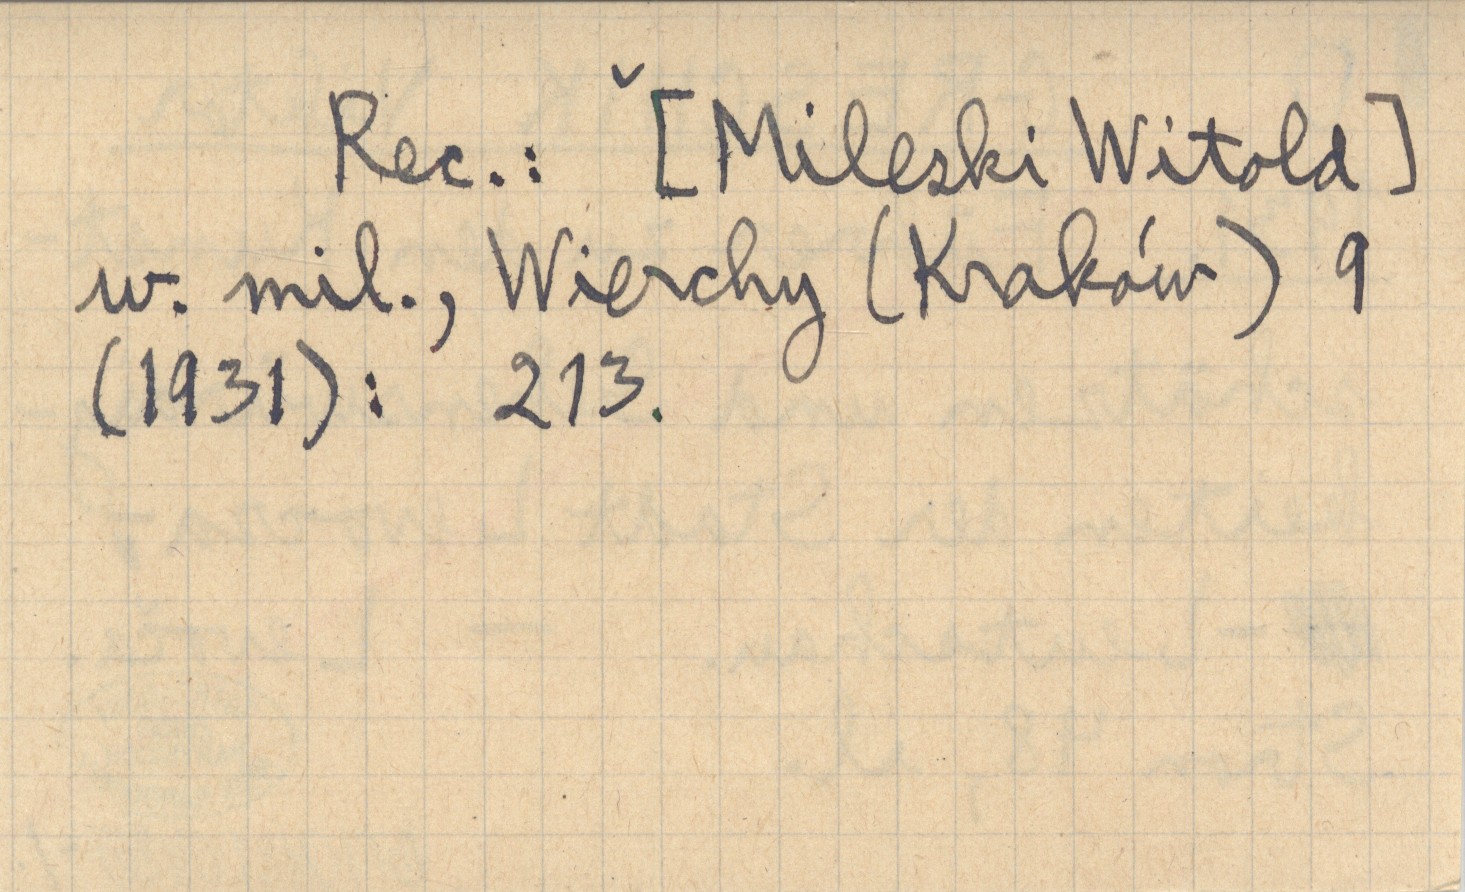 Rec.: [Mileski Witold]
w. mil., Wierchy (Kraków) 9
(1931): 213.